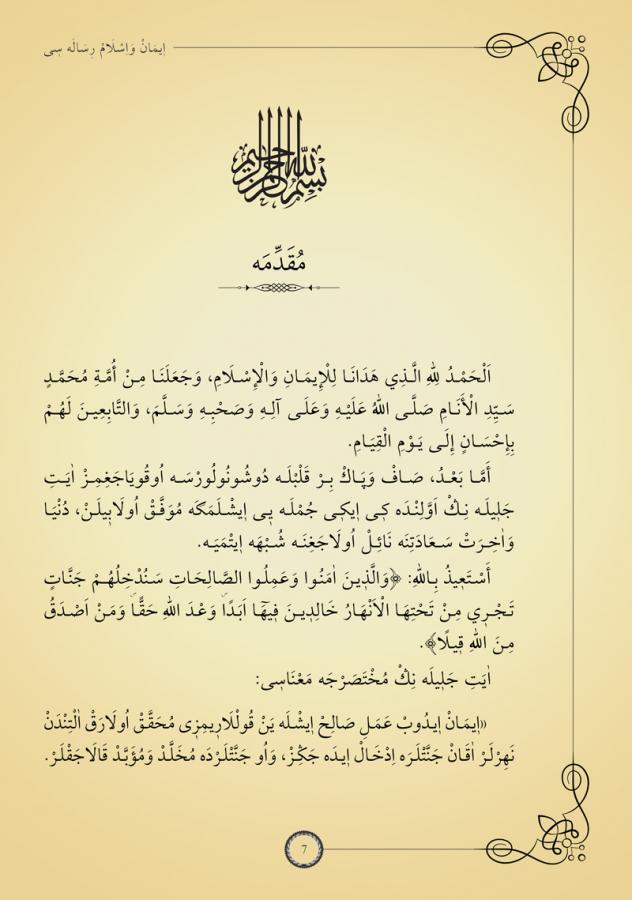 اِيمَانْ وَاِسْلَامْ رِسَالَه سِى
بِسْمِ اللهِ الرَّحْمٰنِ الرَّحِيمِ
مُقَدِّمَه
اَلْحَمْدُ لِلّٰهِ الَّذِي هَدَانَا لِلْإِيمَانِ وَالْإِسْلَامِ، وَجَعَلَنَا مِنْ أُمَّةِ مُحَمَّدٍ
سَيِّدِ الْأَنَامِ صَلَّى اللهُ عَلَيْهِ وَعَلَى آلِهِ وَصَحْبِهِ وَسَلَّمَ، وَالتَّابِعِينَ لَهُمْ
بِإِحْسَانٍ إِلَى يَوْمِ الْقِيَامِ.
أَمَّا بَعْدُ، صَافْ وَپَاكْ بِرْ قَلْبْلَه دُوشُونُولُورْسَه اُوقُويَاجَغِمِزْ اٰيَتِ
جَلِيلَه نِكْ اَوَّلِنْدَه كِى اِيكِى جُمْلَه يِى اِيشْلَمَكَه مُوَفَّقْ اُولَابِيلَنْ، دُنْيَا
وَاٰخِرَتْ سَعَادَتِنَه نَائِلْ اُولَاجَغِنَه شُبْهَه اِيتْمَيَه.
أَسْتَعِيذُ بِاللهِ: ﴿وَالَّذِينَ اٰمَنُوا وَعَمِلُوا الصَّالِحَاتِ سَنُدْخِلُهُمْ جَنَّاتٍ
تَجْرِي مِنْ تَحْتِهَا الْاَنْهَارُ خَالِدِينَ فِيهَٓا اَبَدًا وَعْدَ اللهِ حَقًّا وَمَنْ اَصْدَقُ
مِنَ اللهِ قِيلًا﴾.
اٰيَتِ جَلِيلَه نِكْ مُخْتَصَرْجَه مَعْنَاسِى:
«اِيمَانْ اِيدُوبْ عَمَلِ صَالِحْ اِيشْلَه يَنْ قُولْلَارِيمِزِى مُحَقَّقْ اُولَارَقْ اٰلْتِنْدَنْ
نَهِرْلَرْ اٰقَانْ جَنَّتْلَرَه اِدْخَالْ اِيدَه جَكِزْ، وَاُو جَنَّتْلَرْدَه مُخَلَّدْ وَمُؤَبَّدْ قَالَاجَقْلَرْ.
7